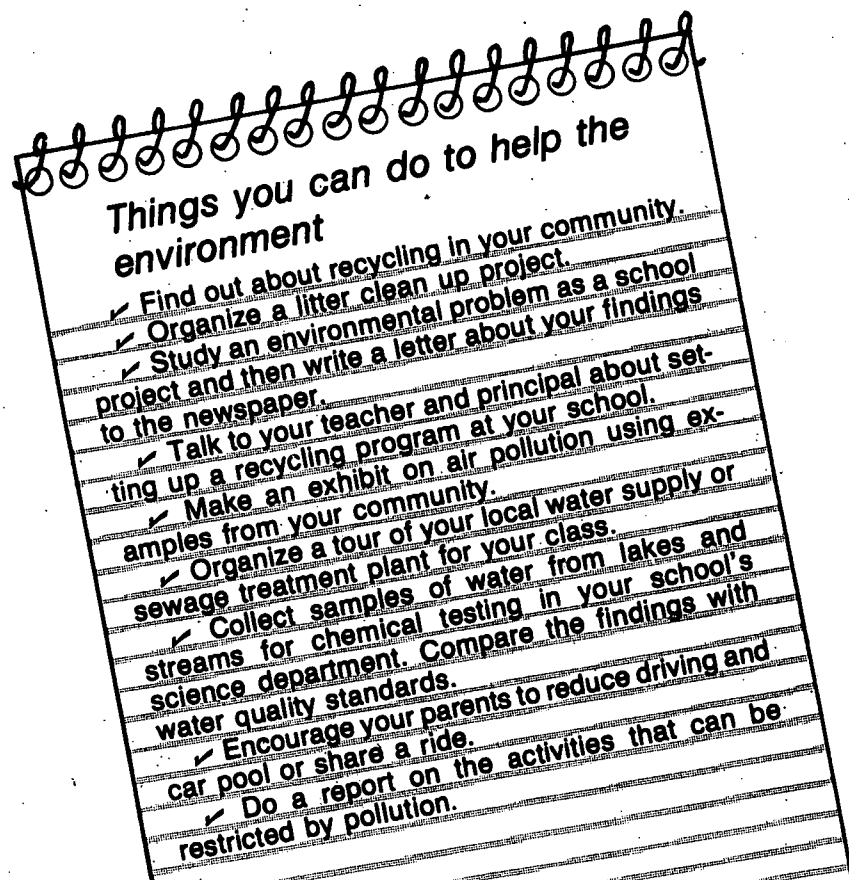 Things you can do to help the
environment
✓ Find out about recycling in your community.
✓ Organize a litter clean up project.
✓ Study an environmental problem as a school
project and then write a letter about your findings
to the newspaper.
✓ Talk to your teacher and principal about set-
ting up a recycling program at your school.
✓ Make an exhibit on air pollution using ex-
amples from your community.
✓ Organize a tour of your local water supply or
sewage treatment plant for your class.
✓ Collect samples of water from lakes and
streams for chemical testing in your school's
science department. Compare the findings with
water quality standards.
✓ Encourage your parents to reduce driving and
car pool or share a ride.
✓ Do a report on the activities that can be
restricted by pollution.